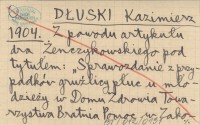 DŁUSKI Kazimierz
1904. Z powodu artykułu
dra Żenczykowskiego pod
tytułem: „Sprawozdanie z przy-
padków gruźlicy płuc u mło-
dzieży w Domu Zdrowia Towa-
rzystwa Bratnia Pomoc w Zako-